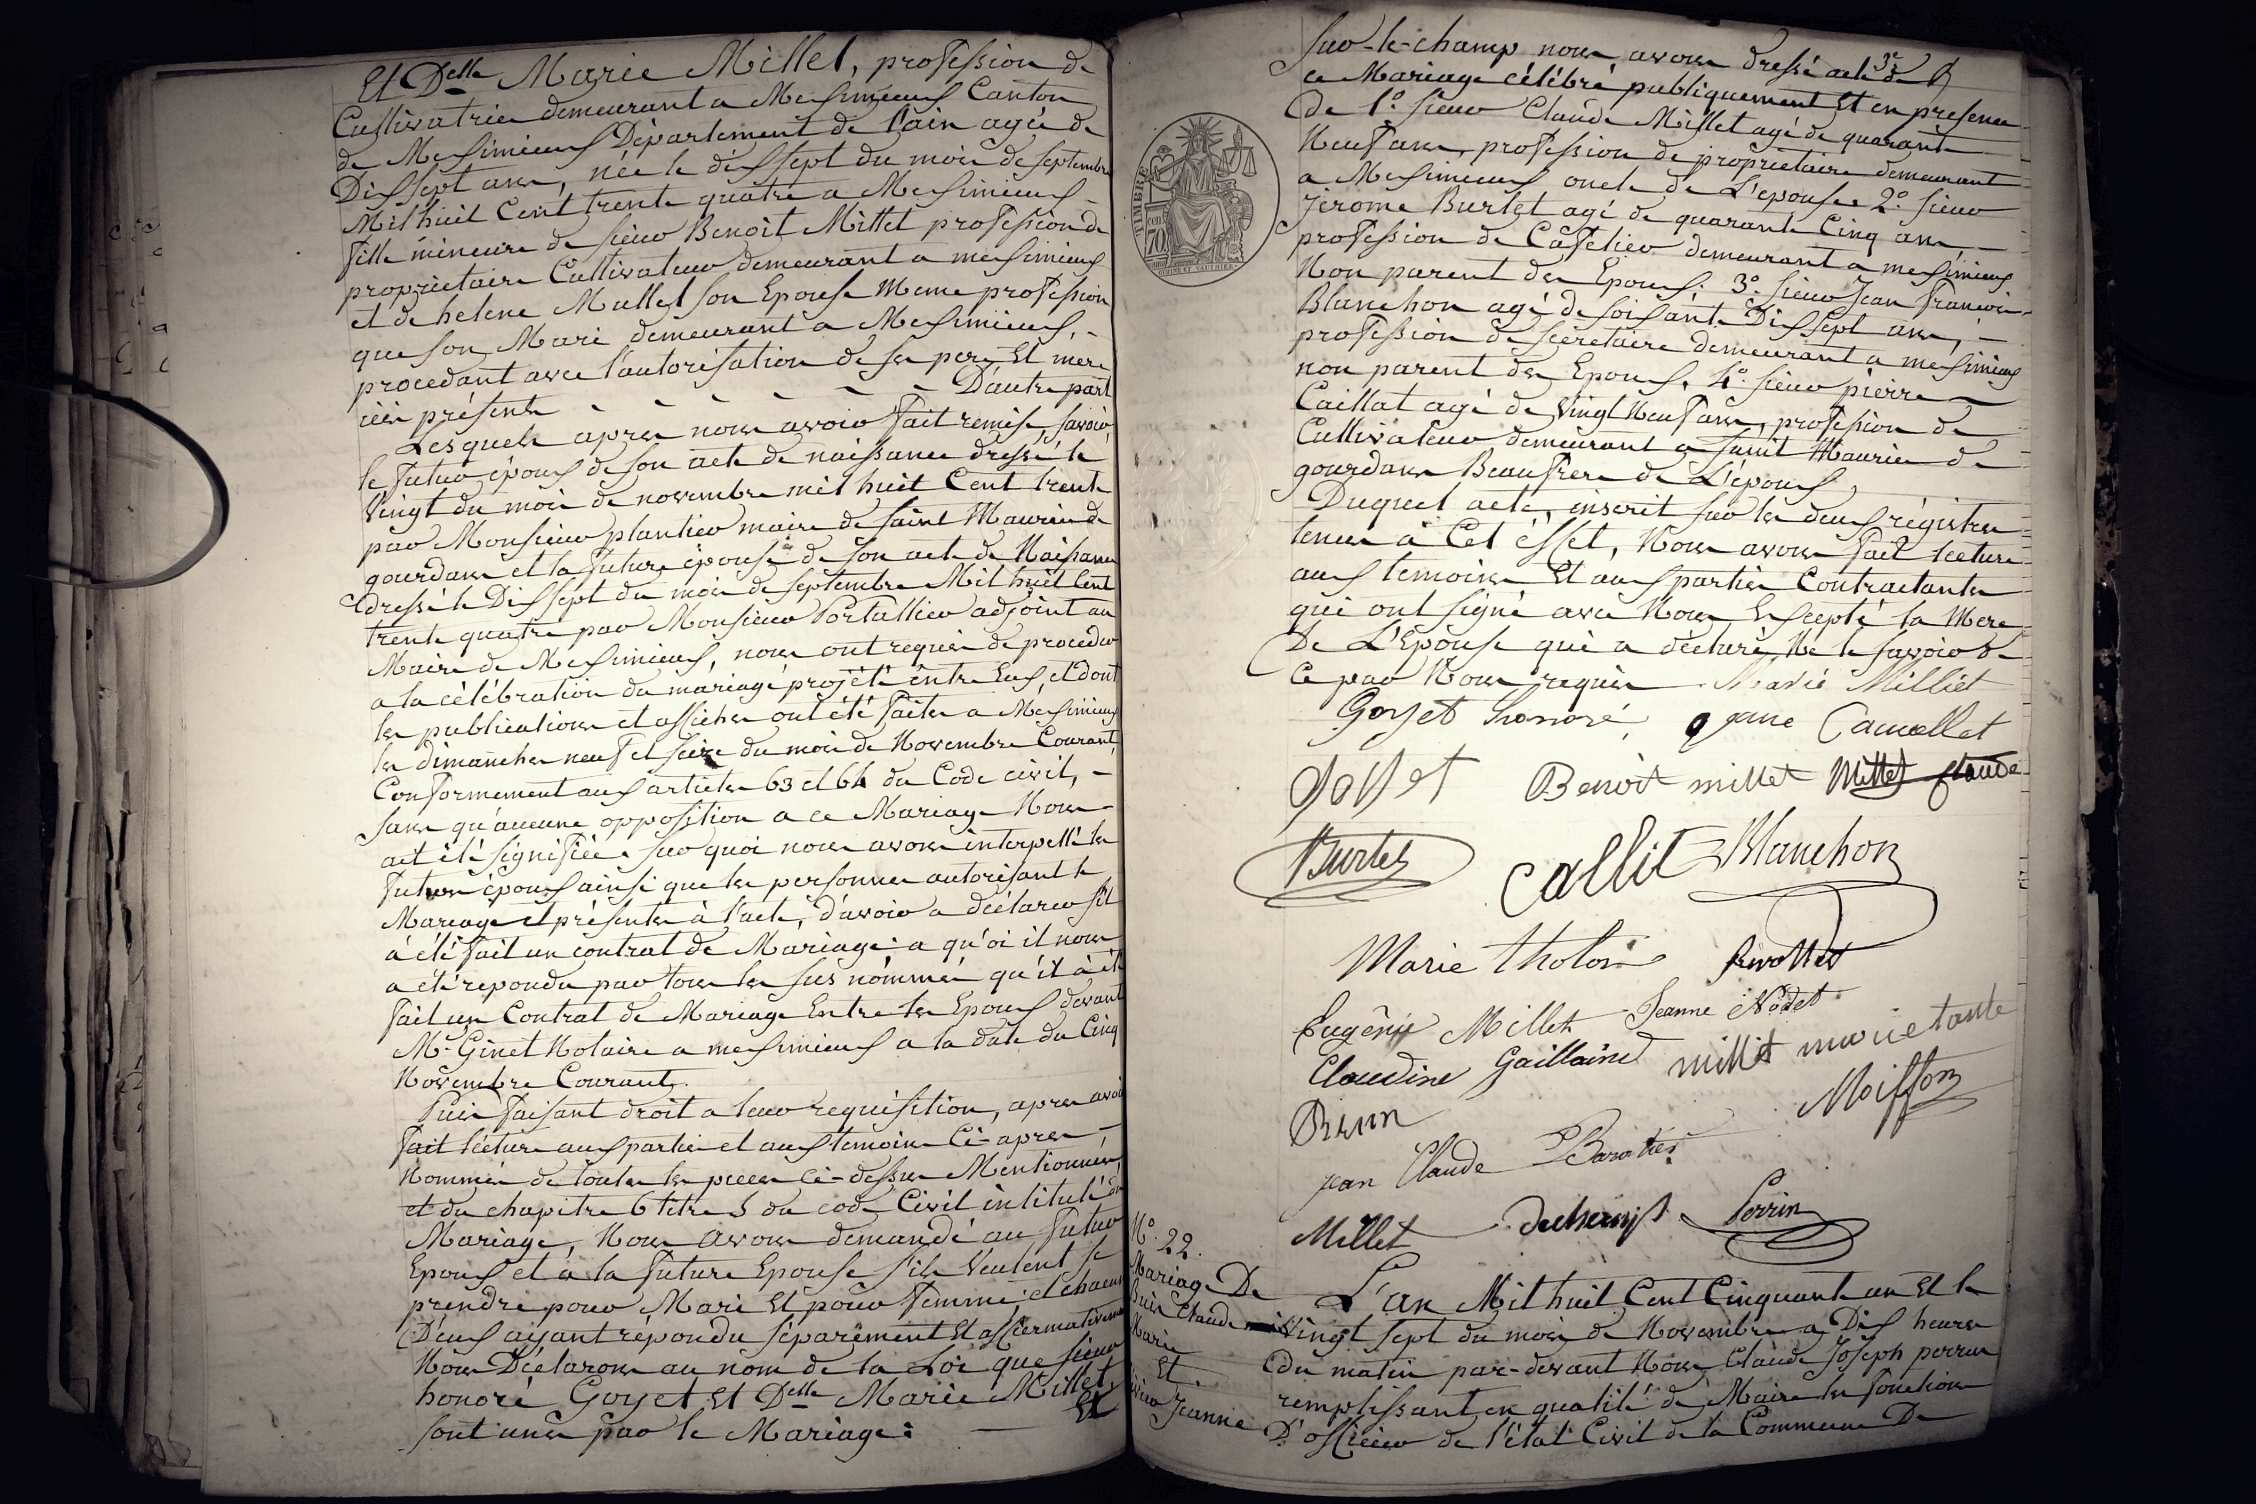 Et Delle Marie Millet, profession de
Cultivatrice demeurant a Meximieux Canton
de Meximieux Département de l'ain agée de
Dixsept ans, née le dixsept du mois de septembre
Mil huit Cent trente quatre a Meximieux
fille mineure de sieur Benoit Millet profession de
propriétaire Cultivateur demeurant a meximieux
et de helene Mallet son Epouse Meme profession
que son Mari demeurant a Meximieux,
procedant avec l'autorisation de ses pere Et mère
ici présents D'autre part
Lesquels apres nous avoir fait remise, savoir,
le futur époux de son acte de naissance dressé le
Vingt du mois de novembre mil huit Cent trente
par Monsieur plantier maire de saint Maurice de
gourdans et la future épouse de son acte de Naissance
dressé le Dixsept du mois de septembre Mil huit Cent
trente quatre par Monsieur Portallier adjoint au
Maire de Meximieux, nous ont requis de proceder
a la célébration du mariage projeté entre Eux, et dont
les publications et affiches ont été faites a Meximieux
les dimanches neuf et seize du mois de Novembre Courant,
Conformement aux articles 63 et 64 du Code civil,
sans qu'aucune opposition a ce Mariage Nous
ait été signifiée. sur quoi nous avons interpellé les
futurs époux ainsi que les personnes autorisant le
Mariage et présentes à l'acte, d'avoir a déclarer s'il
à été fait un contrat de Mariage: a qu'oi il nous
a été repondu par tous les sus nommés qu'il à été
fait un Contrat de Mariage Entre les Epoux devant
Me Ginet Notaire a meximieux a la date du Cinq
Novembre Courant.
Puis faisant droit a leur requisition, apres avoir
fait lecture aux parties et aux temoins Ci-apres
Nommés de toutes les pieces ci-dessus Mentionnées,
et du chapitre 6 titre 5 du code Civil intitulé du
Mariage, Nous avons demandé au futur
Epoux et a la future Epouse s'ils Veulent se
prendre pour Mari Et pour femme, et chacun
D'eux ayant répondu séparément Et affirmativement
Nous Déclarons au nom de la Loi que sieur
honoré Goyet Et Delle Marie Millet
sont unis par le Mariage: Et
sur-le-champ nous avons dressé acte de
ce Mariage célébré publiquement Et en presence
de 1° sieur Claude Millet agé de quarante
Neuf ans, profession de propriétaire demeurant
a Meximieux oncle de L'epouse 2° sieur
Jérome Burlet agé de quarante Cinq ans
profession de Cafetier demeurant a meximieux
Non parent des Epoux. 3° sieur Jean françois
Blanchon agé de soixante Dixsept ans,
profession de secretaire demeurant a meximieux
non parent des Epoux, 4° sieur pierre
Caillat agé de Vingt Neuf ans, profession de
Cultivateur demeurant a saint Maurice de
gourdans Beaufrere de L'époux
Duquel acte, inscrit sur les deux régistres
tenus à Cet éffet, Nous avons fait lecture
aux temoins Et aux parties Contractantes
qui ont signé avec Nous Excepté la Mere
De L'Epouse qui a déclaré Ne le savoir de
Ce par Nous requis. Marie Milliet
Goyet honoré,
Goyet Benoit millet Millet Claude
Burlet Callit Blanchon
Marie tholon
Eugénie Millet Jeanne Nodet
Claudine Gaillaird millet marie tante
Brun Moiffon
jean Claude
Millet Perrin
TIMBRE
70
No. 22.
Mariage De
Buis Claude
Marie
Et
Jeanne
L'an Mil huit Cent Cinquante un Et le
Vingt sept du mois de Novembre a Dix heures
du matin par-devant Nous Claude Joseph perrin
remplissant en qualité de Maire les fonctions
D'officier de l'état Civil de la Commune De